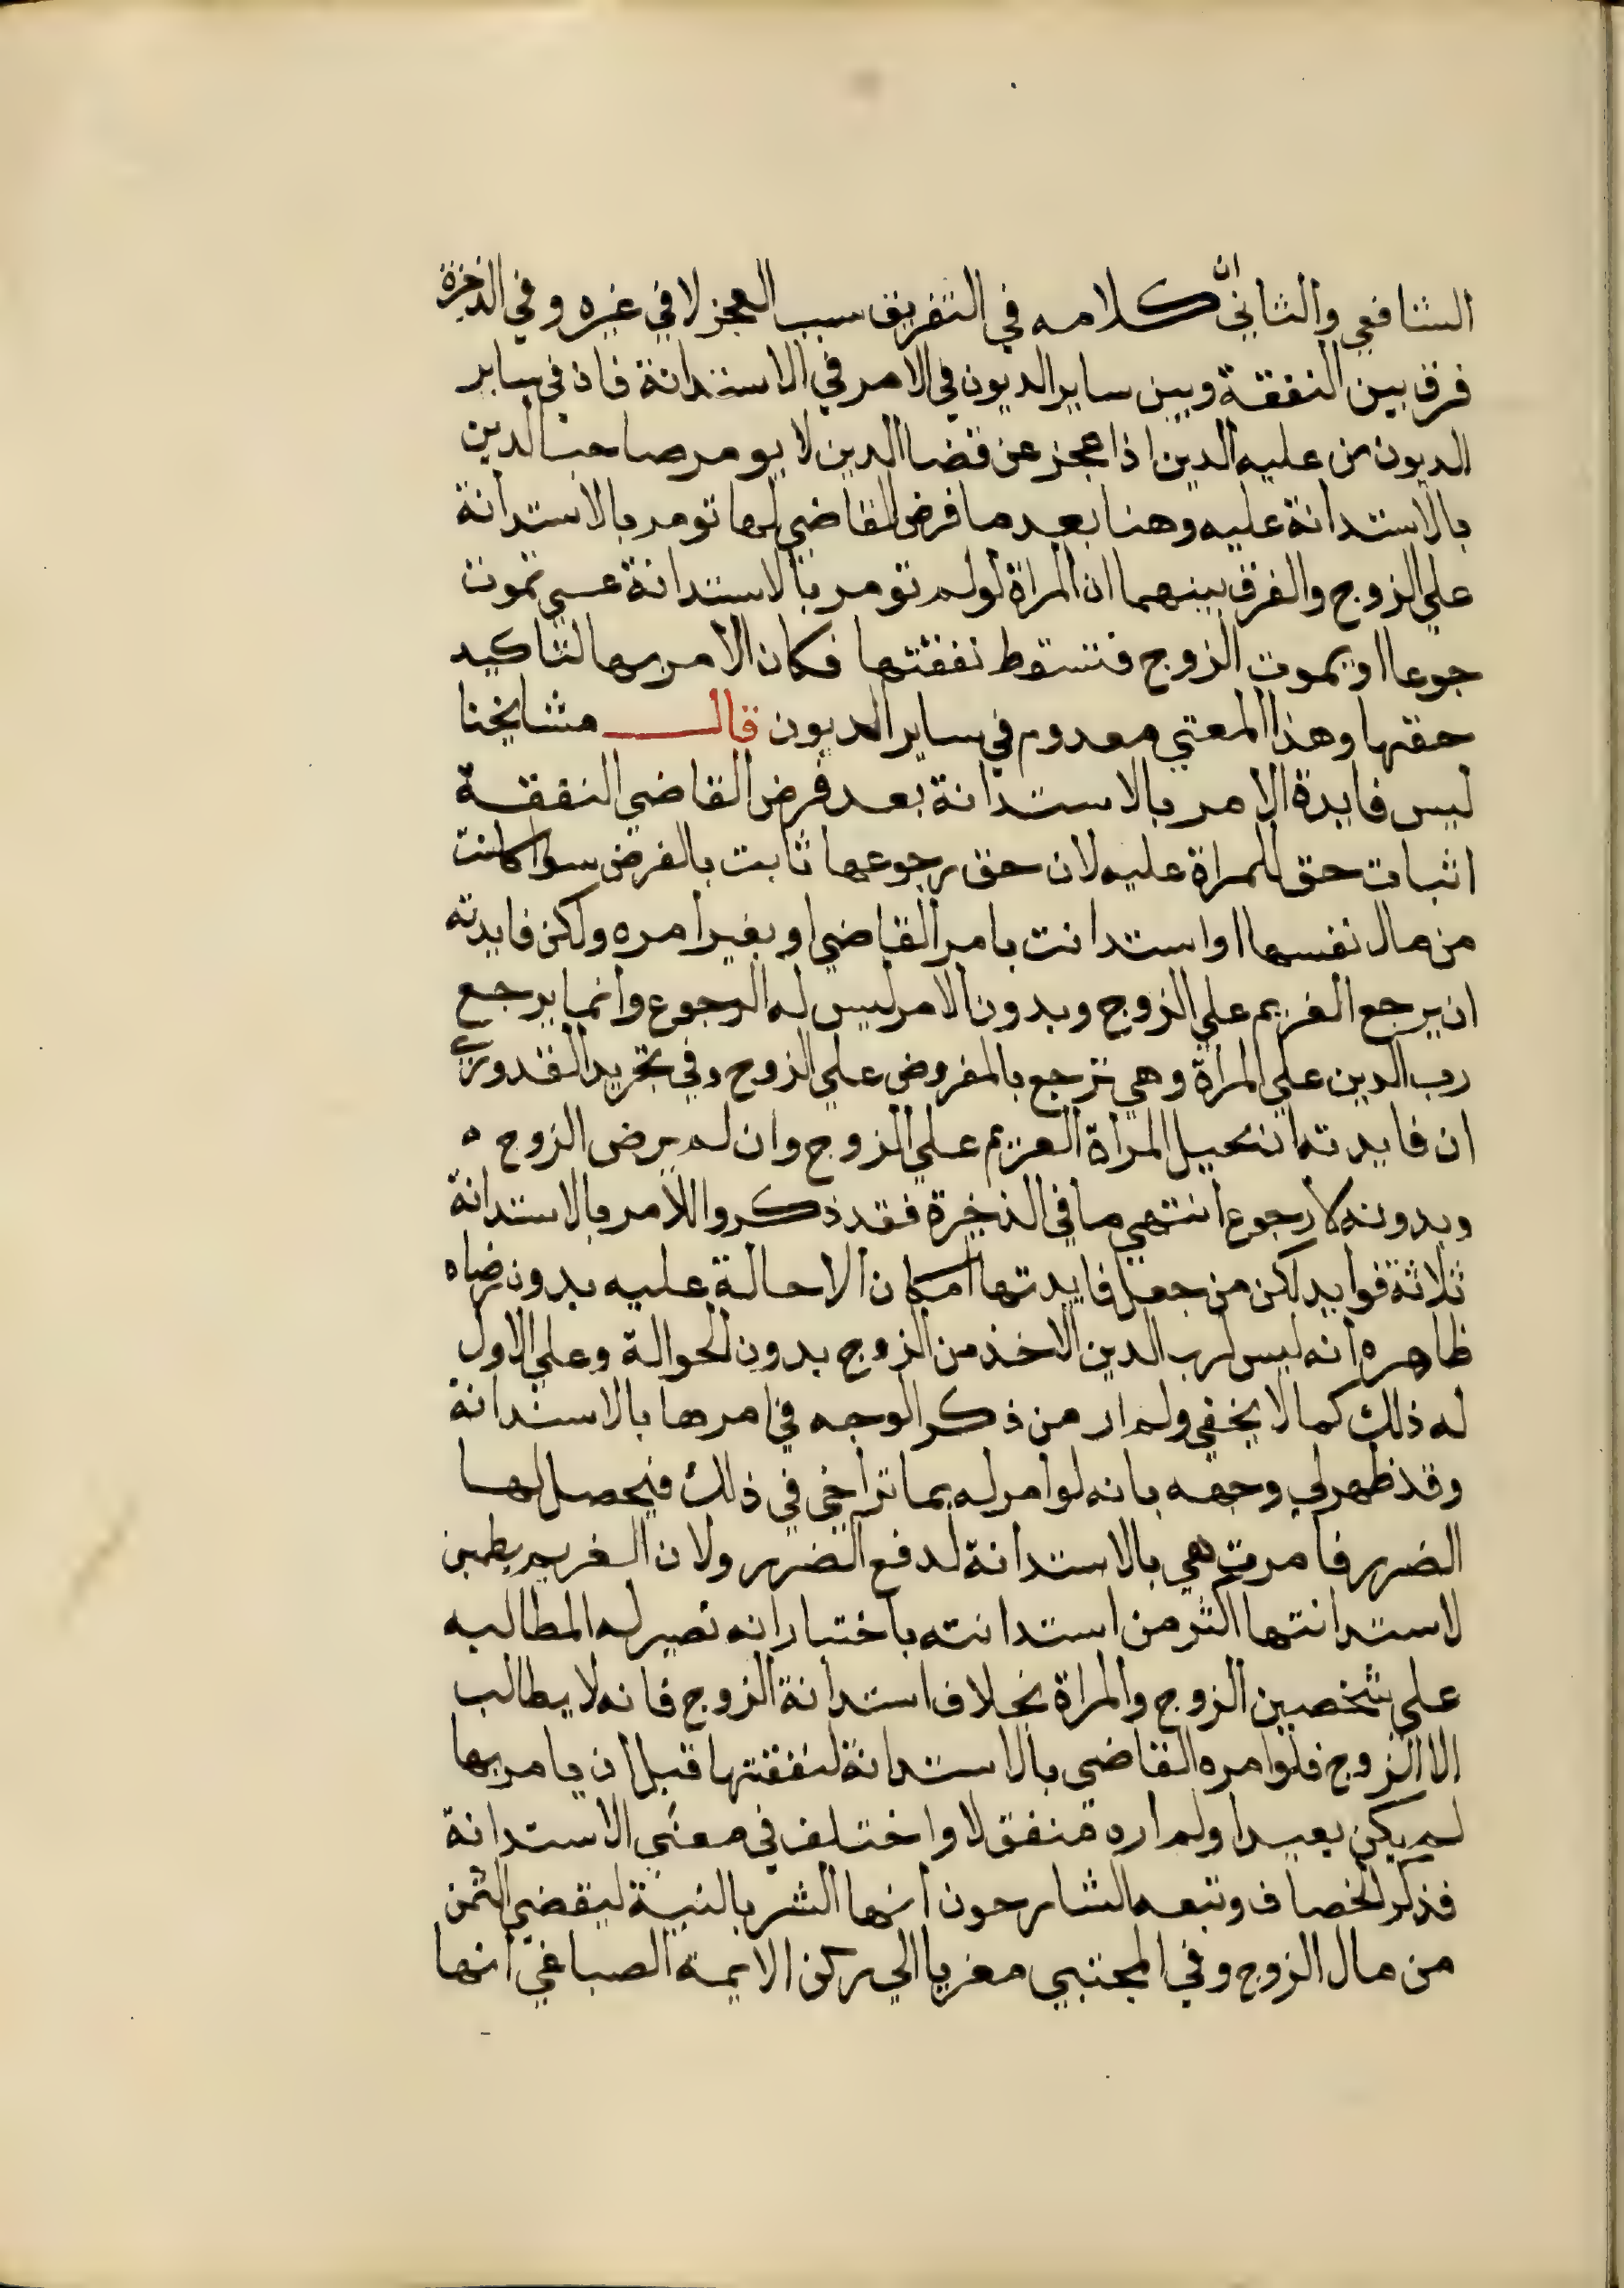 الشافعي والثاني انّ كلامه في التفريق بسبب العجز لا في غيره وفي الذخيرة
فرق بين النفقة وبين ساير الديون في الامر في الاستدانة فان في ساير
الديون من عليه الدين اذا عجز عن قضا الدين لا يومر صاحب الدين
بالاستدانة عليه وهنا بعد ما فرض القاضي لها تومر بالاستدانة
علي الزوج والفرق بينهما ان المراة لو لم تومر بالاستدانة عسي تموت
جوعا او يموت الزوج فتسقط نفقتها فكان الامر بها لتاكيد
حقها وهذا المعني معدوم في ساير الديون قال مشايخنا
ليس فايدة الامر بالاستدانة بعد فرض القاضي النفقة
اثبات حق للمراة عليه لان حق رجوعها ثابت بالفرض سوا كانت
من مال نفسها او استدانت بامر القاضي او بغير امره ولكن فايدته
ان يرجع الغريم علي الزوج وبدون الامر ليس له الرجوع وانما يرجع
رب الدين علي المراة وهي ترجع بالمفروض علي الزوج وفي تجريد القدوري
ان فايدته ان تحيل المراة الغريم علي الزوج وان لم يرض الزوج ه
وبدونه لا رجوع انتهي ما في الذخيرة فقد ذكروا للامر بالاستدانة
ثلاثة فوايد لكن من جعل فايدتها امكان الاحالة عليه بدون رضاه
ظاهره انه ليس لرب الدين الاخذ من الزوج بدون الحوالة وعلي الاول
له ذلك كما لا يخفي ولم ار من ذكر الوجه في امرها بالاستدانة
وقد ظهر لي وجهه بانه لو امر له بما تراخي في ذلك فيحصل لها
الضرر فامرت هي بالاستدانة لدفع الضرر ولان الغريم يطمين
لاستدانتها اكثر من استدانته باختبار انه تصير له المطالبه
علي شخصين الزوج والمراة بخلاف استدانة الزوج فانه لا يطالب
الا الزوج فلو امره القاضي بالاستدانة لنفقتها قبل ان يامر بها
لم يكن بعيدا ولم اره منفقولا واختلف في معني الاستدانة
فذكر الخصاف وتبعه الشارحون انها الشر بالنيية ليقضي الثمن
من مال الزوج وفي المجتبي معزيا الي ركن الايمة الصباغي انها